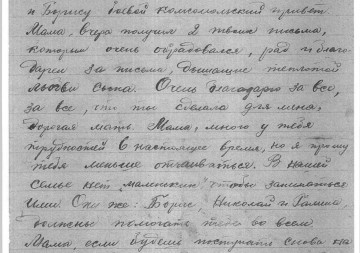 и Борису боевой комсомольский привет
Мама, вчера получил 2 твоих письма,
которым очень обрадовался, рад и благо-
дарен за письма, дышащие теплотой
любви сына. Очень благодарю за все,
за все, что ты сделала для меня,
дорогая мать. Мама, много у тебя
трудностей в настоящее время, но я прошу
тебя меньше отчаиваться. В нашей
семье нет маленьких чтобы заниматься
ими. Они же: Борис, Николай и Галина,
должны помогать тебе во всем
Мама, если будешь поступать снова на